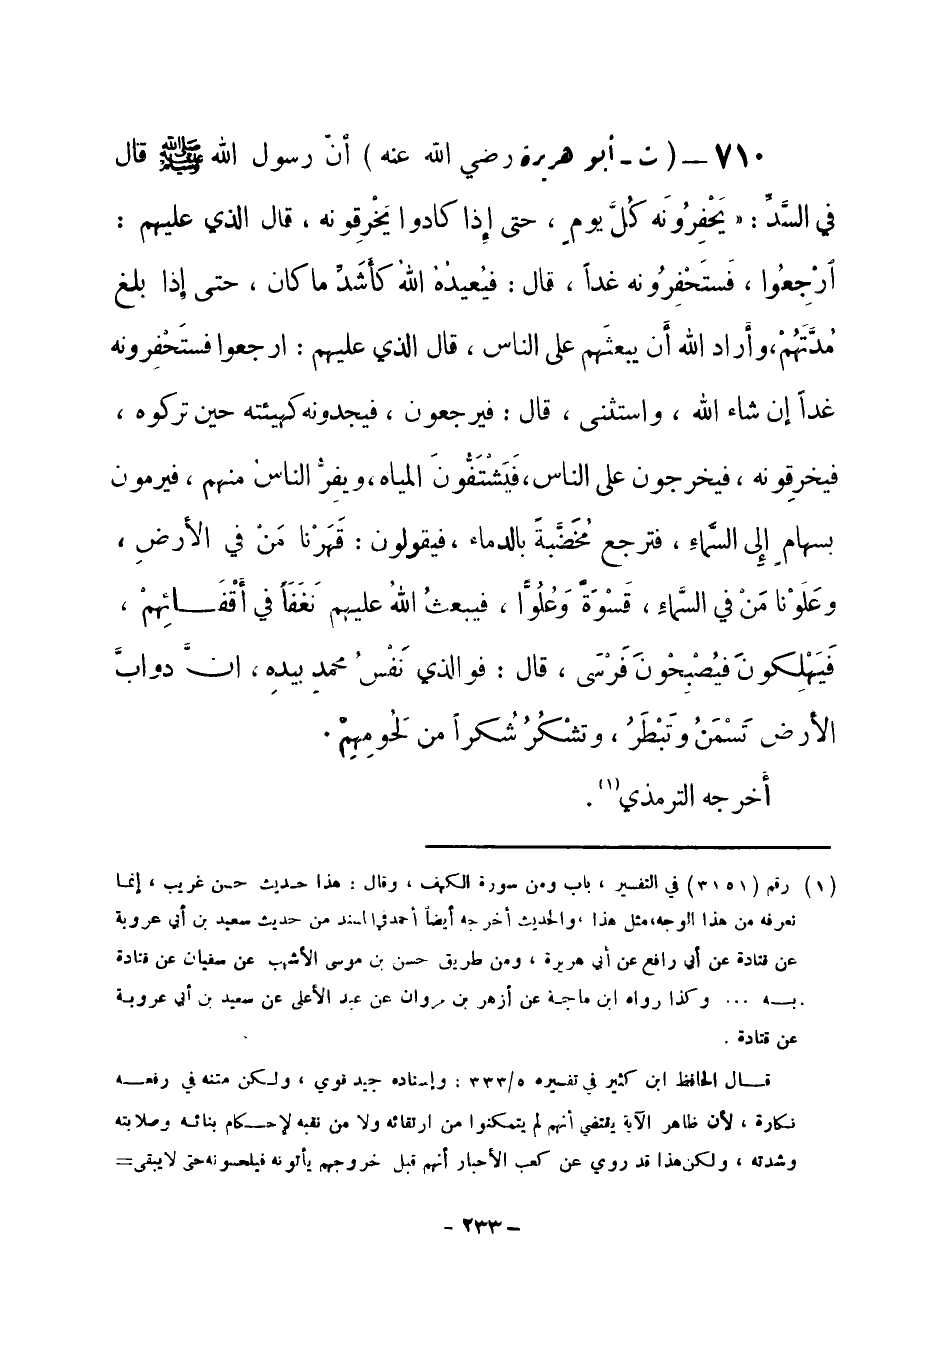 ٧١٠ – ( ت - أبو هريرة رضي الله عنه ) أنّ رسول الله ﷺ قال
في السَّدِّ : « يَحْفِرُونَه كُلَّ يومٍ ، حتى إذا كادوا يَخْرِقونه ، قال الذي عليهم :
ٱرْجِعُوا ، فَستَحْفِرُونه غداً ، قال : فيُعيدُهُ اللهُ كأَشَدِّ ما كان ، حتى إذا بلغ
مُدَّتَهُمْ،وأَراد الله أَن يبعثَهم على الناس ، قال الذي عليهم : ارجعوا فستَحْفِرونه
غداً إن شاء الله ، واستثنى ، قال : فيرجعون ، فيجدونه كهيئته حين تركوه ،
فيخرِقونه ، فيخرجون على الناس،فَيَسْتَقُونَ المياه،ويفِرُّ الناسُ منهم ، فيرمون
بسهامٍ إلى السَّماءِ ، فترجع مُخَضَّبةً بالدماء ، فيقولون : قَهَرْنا مَنْ في الأرضِ ،
وعَلَوْنا مَنْ في السَّماءِ ، قَسْوَةً وَعُلُوًّا ، فيبعثُ اللهُ عليهم نَغَفَاً في أَقْفَـــائِهِمْ ،
فَيَهْلِكونَ فيُصْبِحْونَ فَرْسَى ، قال : فوالذي نَفْسُ محمدٍ بيدِه ، انَّ دوابَّ
الأرض تَسْمَنُ وتَبْطَرُ ، وتشْكُرُ شُكراً من لَحُومِهِمْ .
أَخرجه الترمذي(١) .
(١) رقم (٣١٥١) في التفسير ، باب ومن سورة الكهف ، وقال : هذا حديث حسن غريب ، إنما
نعرفه من هذا الوجه،مثل هذا ،والحديث أخرجه أيضاً أحمد في المسند من حديث سعيد بن أبي عروبة
عن قتادة عن أبي رافع عن أبي هريرة ، ومن طريق حسن بن موسى الأشهب عن سفيان عن قتادة
بـــه ... وكذا رواه ابن ماجة عن أزهر بن مروان عن عبد الأعلى عن سعيد بن أبي عروبة
عن قتادة .
قـــال الحافظ ابن كثير في تفسيره ٣٣٣/٥ : وإسناده جيد قوي ، ولكن متنه في رفعـــه
نكارة ، لأن ظاهر الآية يقتضي أنهم لم يتمكنوا من ارتقائه ولا من نقبه لإحـــكام بنائه وصلابته
وشدته ، ولكن هذا قد روي عن كعب الأحبار أنهم قبل خروجهم يأتونه فيلحسونه حتى لا يبقى=
– ٢٣٣ –